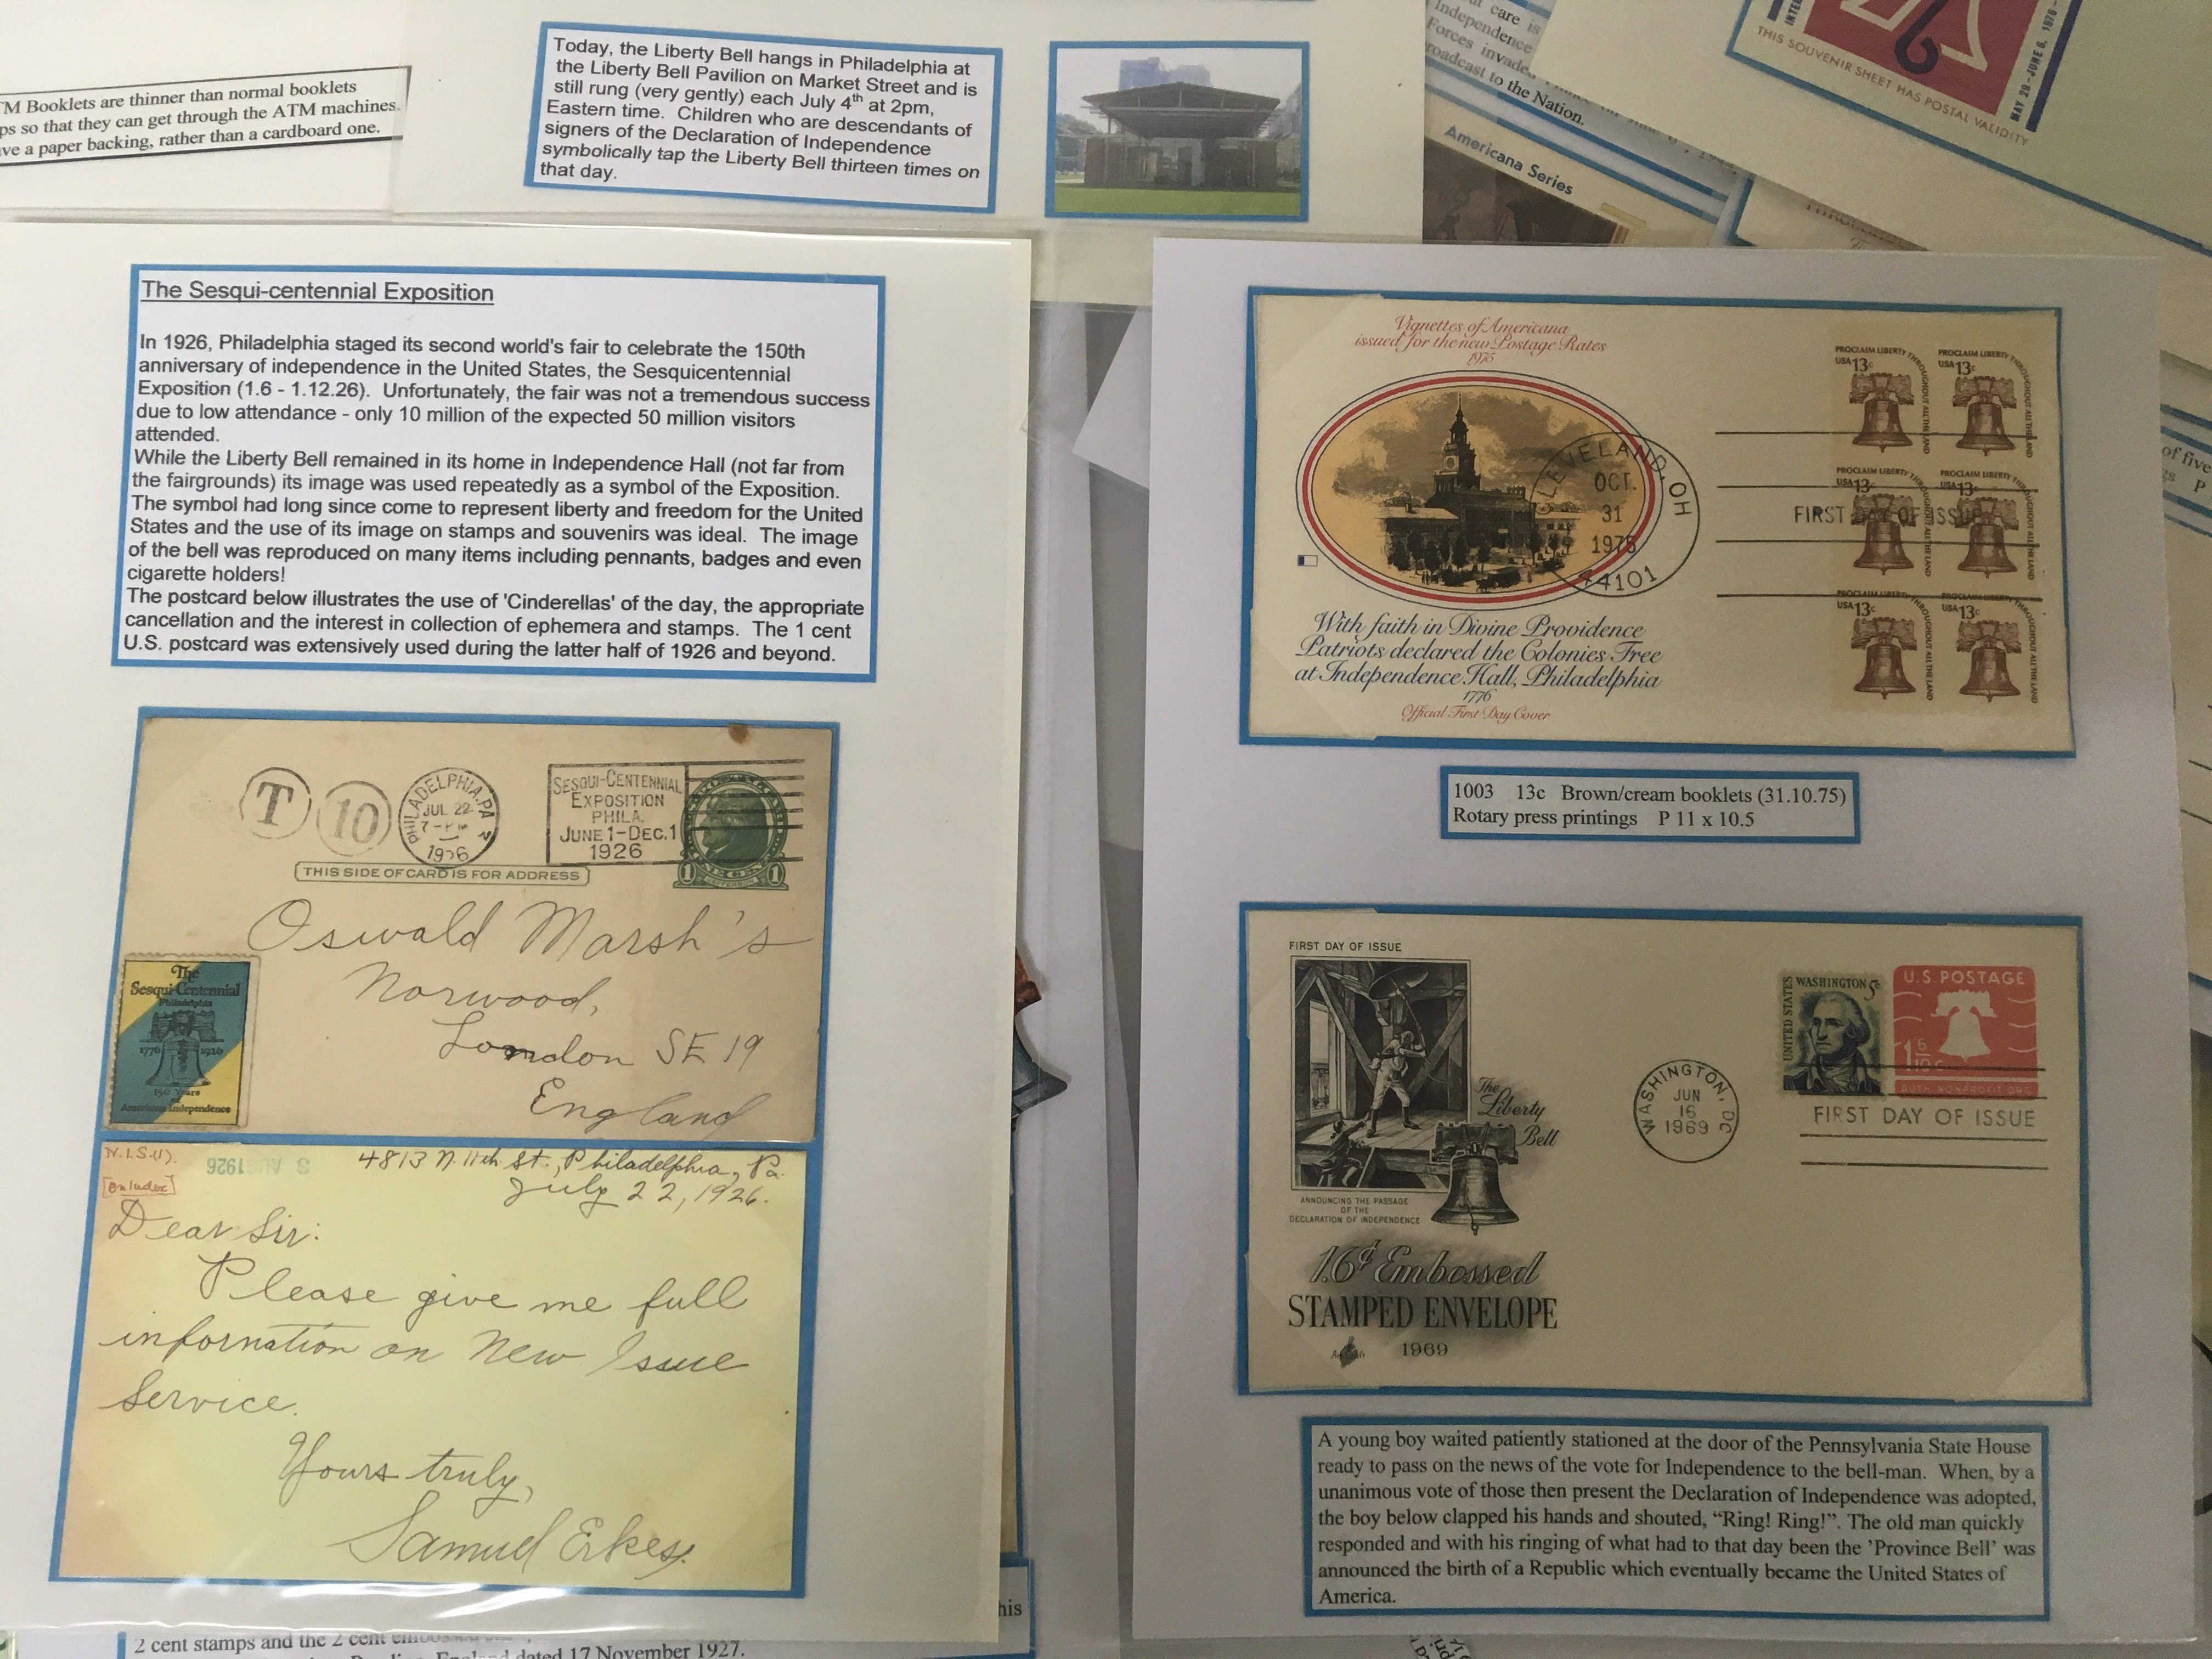 TM Booklets are thinner than normal booklets
ps so that they can get through the ATM machines.
ve a paper backing, rather than a cardboard one.
Today, the Liberty Bell hangs in Philadelphia at
the Liberty Bell Pavilion on Market Street and is
still rung (very gently) each July 4th at 2pm,
Eastern time. Children who are descendants of
signers of the Declaration of Independence
symbolically tap the Liberty Bell thirteen times on
that day.
care is
Independence
Forces invaded
roadcast to the Nation.
Americana Series
THIS SOUVENIR SHEET HAS POSTAL VALIDITY
MAY 29-JUNE 6, 1976
The Sesqui-centennial Exposition
In 1926, Philadelphia staged its second world's fair to celebrate the 150th
anniversary of independence in the United States, the Sesquicentennial
Exposition (1.6 - 1.12.26). Unfortunately, the fair was not a tremendous success
due to low attendance - only 10 million of the expected 50 million visitors
attended.
While the Liberty Bell remained in its home in Independence Hall (not far from
the fairgrounds) its image was used repeatedly as a symbol of the Exposition.
The symbol had long since come to represent liberty and freedom for the United
States and the use of its image on stamps and souvenirs was ideal. The image
of the bell was reproduced on many items including pennants, badges and even
cigarette holders!
The postcard below illustrates the use of 'Cinderellas' of the day, the appropriate
cancellation and the interest in collection of ephemera and stamps. The 1 cent
U.S. postcard was extensively used during the latter half of 1926 and beyond.
T
10
PHILADELPHIA, PA
JUL 22
7-PM
1926
SESQUI-CENTENNIAL
EXPOSITION
PHILA.
JUNE 1-DEC.1
1926
1 JEFFERSON 1
THIS SIDE OF CARD IS FOR ADDRESS
Oswald Marsh's
Norwood,
London SE 19
England
The
Sesqui-Centennial
Philadelphia
1776 1926
150 Years
of
American Independence
N.I.S.(1).
[on Index]
3 AUG 1926
4813 N. 11th St., Philadelphia, Pa.
July 22, 1926.
Dear Sir:
Please give me full
infornation on New Issue
Service.
Yours truly,
Samuel Erkes.
his
2 cent stamps and the 2 cent embossed
England dated 17 November 1927.
Vignettes of Americana
issued for the new Postage Rates
1975
CLEVELAND, OH
OCT.
31
1975
44101
With faith in Divine Providence
Patriots declared the Colonies Free
at Independence Hall, Philadelphia
1776
Official First Day Cover
PROCLAIM LIBERTY THROUGHOUT ALL THE LAND
USA 13c
PROCLAIM LIBERTY THROUGHOUT ALL THE LAND
USA 13c
PROCLAIM LIBERTY THROUGHOUT ALL THE LAND
USA 13c
PROCLAIM LIBERTY THROUGHOUT ALL THE LAND
USA 13c
FIRST DAY OF ISSUE
PROCLAIM LIBERTY THROUGHOUT ALL THE LAND
USA 13c
PROCLAIM LIBERTY THROUGHOUT ALL THE LAND
USA 13c
1003 13c Brown/cream booklets (31.10.75)
Rotary press printings P 11 x 10.5
FIRST DAY OF ISSUE
The
Liberty
Bell
ANNOUNCING THE PASSAGE
OF THE
DECLARATION OF INDEPENDENCE
1.6¢ Embossed
STAMPED ENVELOPE
1969
WASHINGTON, DC
JUN
16
1969
UNITED STATES
WASHINGTON 5c
U.S. POSTAGE
1 6/10 c
AUTH NONPROFIT ORG
FIRST DAY OF ISSUE
A young boy waited patiently stationed at the door of the Pennsylvania State House
ready to pass on the news of the vote for Independence to the bell-man. When, by a
unanimous vote of those then present the Declaration of Independence was adopted,
the boy below clapped his hands and shouted, “Ring! Ring!”. The old man quickly
responded and with his ringing of what had to that day been the 'Province Bell' was
announced the birth of a Republic which eventually became the United States of
America.
of five